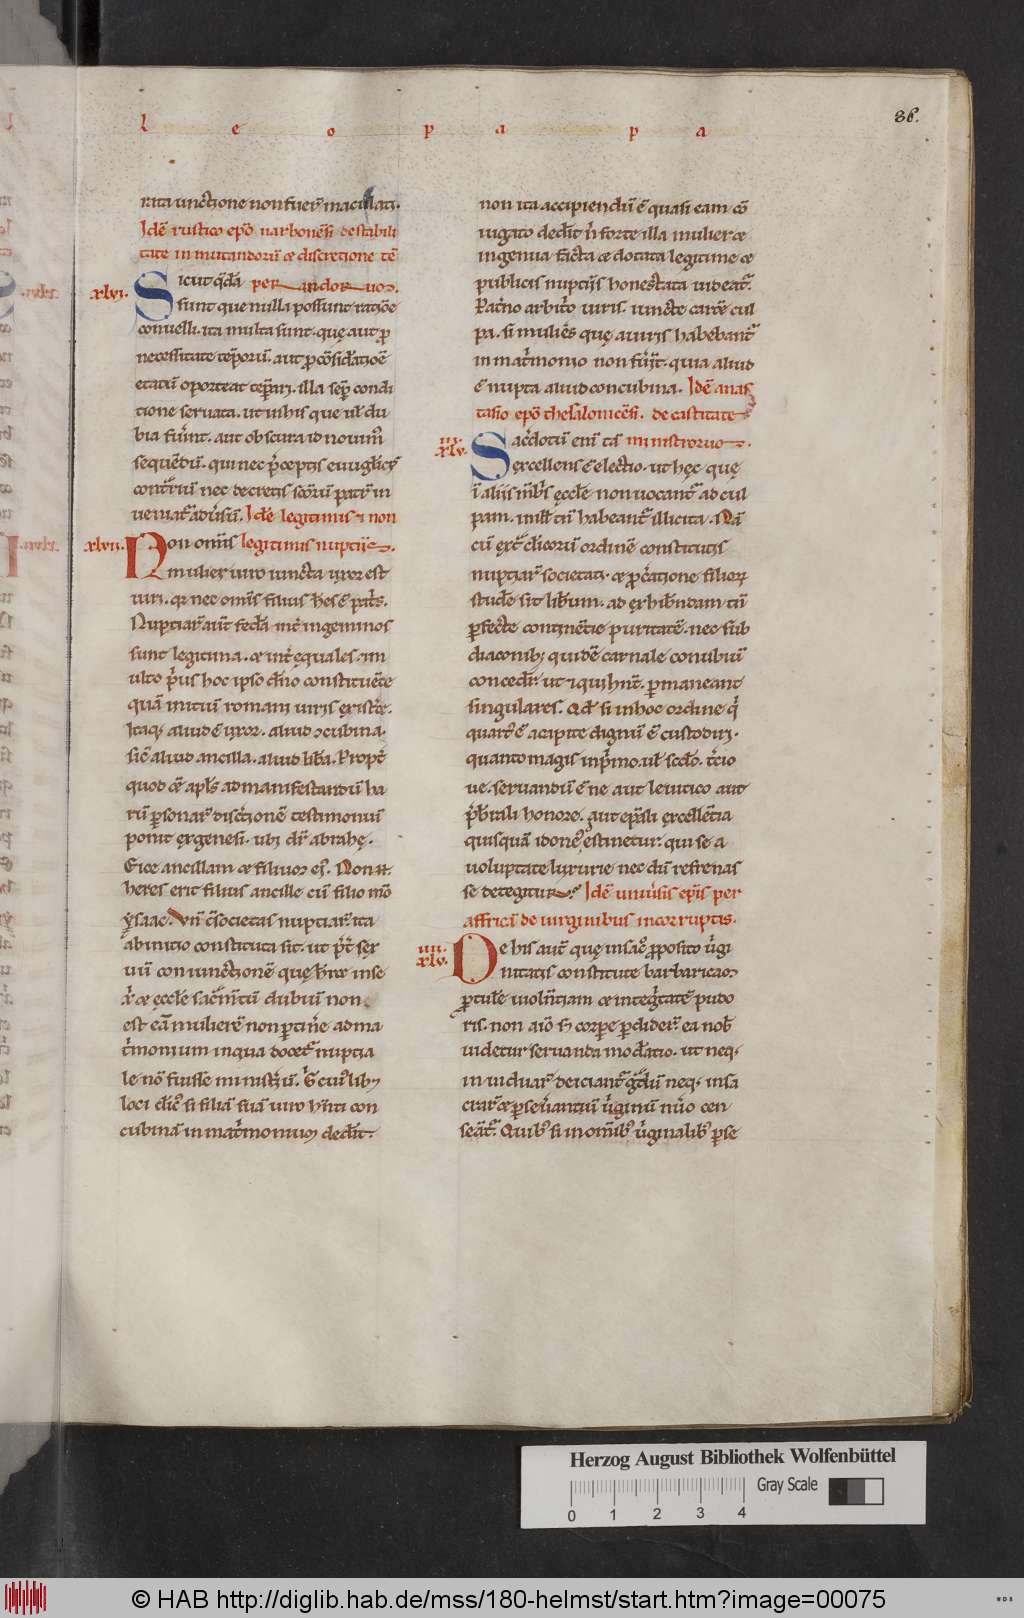 l e o p a p a
86.
rita unctione non fuer̄ maculati.
Idē rustico epō narbonēsi de stabili
tate in mutandorū & discretione tē
xlvi. Sicut q̄dā perandorum.
sunt que nulla possunt ratiōe
conuelli. ita multa sunt. quę aut p̄
necessitate tēporū. aut p̄ cōsid̄atiōe
etatū oporteat tēp̄ari. illa sēp̄ condi
tione seruata. ut in his que ul̄ du
bia fūint. aut obscura id nouim̄
sequēdū. qui nec p̄ceptis euuglicis
contrariū nec decretis scōrū patr̄ in
ueniat̄ aduersū. Idē legitimis & non
xlvii. Non om̄is legitimis nuptiis.
mulier uiro iuncta uxor est
uiri. q̄ nec om̄is filius h̄es ē patris.
Nuptiar̄ aut̄ fed̄a int̄ ingenuos
sunt legitima. & int̄ ęquales. m
ulto p̄us hoc ipso dn̄o constituēte
quā initiū romani iuris existeret.
Itaq; aliud ē uxor. aliud ɔcubina.
sic̄ aliud ancilla. aliud lib̄a. Propt̄
quod & apl̄s ad manifestandū ha
rū p̄sonar̄ discretionē testimoniū
ponit ex genesi. ubi dr̄ abrahę.
Eice ancillam & filium eius. Non .n.
heres erit filius ancille cū filio meo
ysaac. Vn̄ cū societas nuptiar̄ ita
ab initio constituta sit. ut p̄t̄ sex
uū coniunctionē quę h̄ret in se
xp̄i & ęccl̄e sacm̄tū dubiū non
est eā mulierē non ptinere ad ma
trimonium in qua docet̄ nuptia
le nō fuisse ministeriū. Ḡ cuiuslibꝫ
loci cleric̄ si filiā suā uiro hn̄ti con
cubinā in matrimonium dederit.
non ita accipiendū ē quasi eam cō
iugato dederit n̄ forte illa mulier &
ingenua facta & dotata legitime &
publicis nuptiis honestata uideat̄.
Paterno arbitrio uiris. iuncte carent cul
pa. si mulieres quę a uiris habebant̄
in matrimonio non fuerūt. quia aliud
ē nupta aliud concubina. Idē anas
tasio epō thesalonicēsi. de castitate
iii. xlv. Sacerdotū enī tā ministrorum.
excellens ē electio. ut hęc quę
ī aliis mēbris ęccl̄e non uocant̄ ad cul
pam. in illis tn̄ habeant̄ illicita. Nā
cū ext̄ clericorū ordinē constitutis
nuptiar̄ societati. & procreatione filiorū
studere sit liberum. ad exhibendam tn̄
perfecte continētie puritatē. nec sub
diaconibꝫ quidē carnale conubiū
concedit̄ ut & qui hn̄t. p̄maneant
singulares. Qd̄ si in hoc ordine q̄
quart̄ ē a capite dignū ē custodiri.
quanto magis in p̄mo. ul̄ scd̄o. tercio
ue. seruandū ē ne aut leuitico aut
p̄sbiterali honore. aut ep̄ali excellētia
quisquā idoneus existimetur. qui se a
uoluptate luxurie nec dū refrenas
se detegitur. Idē uniūsis ep̄is per
affricā de uirginibus incorruptis.
iiii. xlv. De his aut̄ quę in sacro p̄posito uirgi
nitatis constitute barbaricam
ptulere uiolentiam & integritatē pudo
ris. non aīo sꝫ corpore p̄diderunt ea nob̄
uidetur seruanda moderatio. ut neq;
in uiduar̄ deiciant̄ gradū neq; in sa
crar̄ & p̄seuerantiū uirginū num̄o cen
seāt̄. Quibus si in om̄ibꝫ uirginalibꝫ p̄se
Herzog August Bibliothek Wolfenbüttel
Gray Scale
0 1 2 3 4
© HAB http://diglib.hab.de/mss/180-helmst/start.htm?image=00075